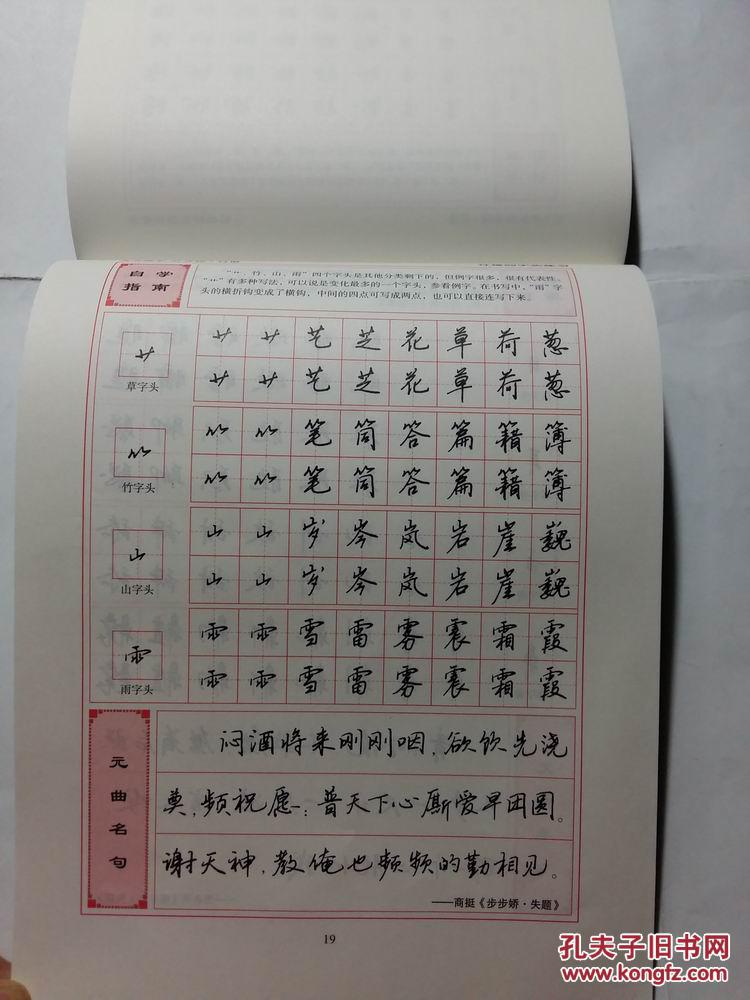 自学
指南
"艹、竹、山、雨"四个字头是其他分类剩下的，但例字很多，很有代表性。
"艹"有多种写法，可以说是变化最多的一个字头，参看例字。在书写中，"雨"字
头的横折钩变成了横钩，中间的四点可写成两点，也可以直接连写下来。
艹 艹 艹 艺 芝 花 草 荷 葱
草字头
艹 艹 艺 芝 花 草 荷 葱
⺮ ⺮ ⺮ 笔 筒 答 篇 籍 簿
竹字头
⺮ ⺮ 笔 筒 答 篇 籍 簿
山 山 山 岁 岑 岚 岩 崖 巍
山字头
山 山 岁 岑 岚 岩 崖 巍
雨 雨 雨 雪 雷 雾 震 霜 霞
雨字头
雨 雨 雪 雷 雾 震 霜 霞
元曲名句
闷酒将来刚刚咽，欲饮先浇
奠，频祝愿：普天下心厮爱早团圆。
谢天神，教俺也频频的勤相见。
——商挺《步步娇·失题》
19
孔夫子旧书网
www.kongfz.com